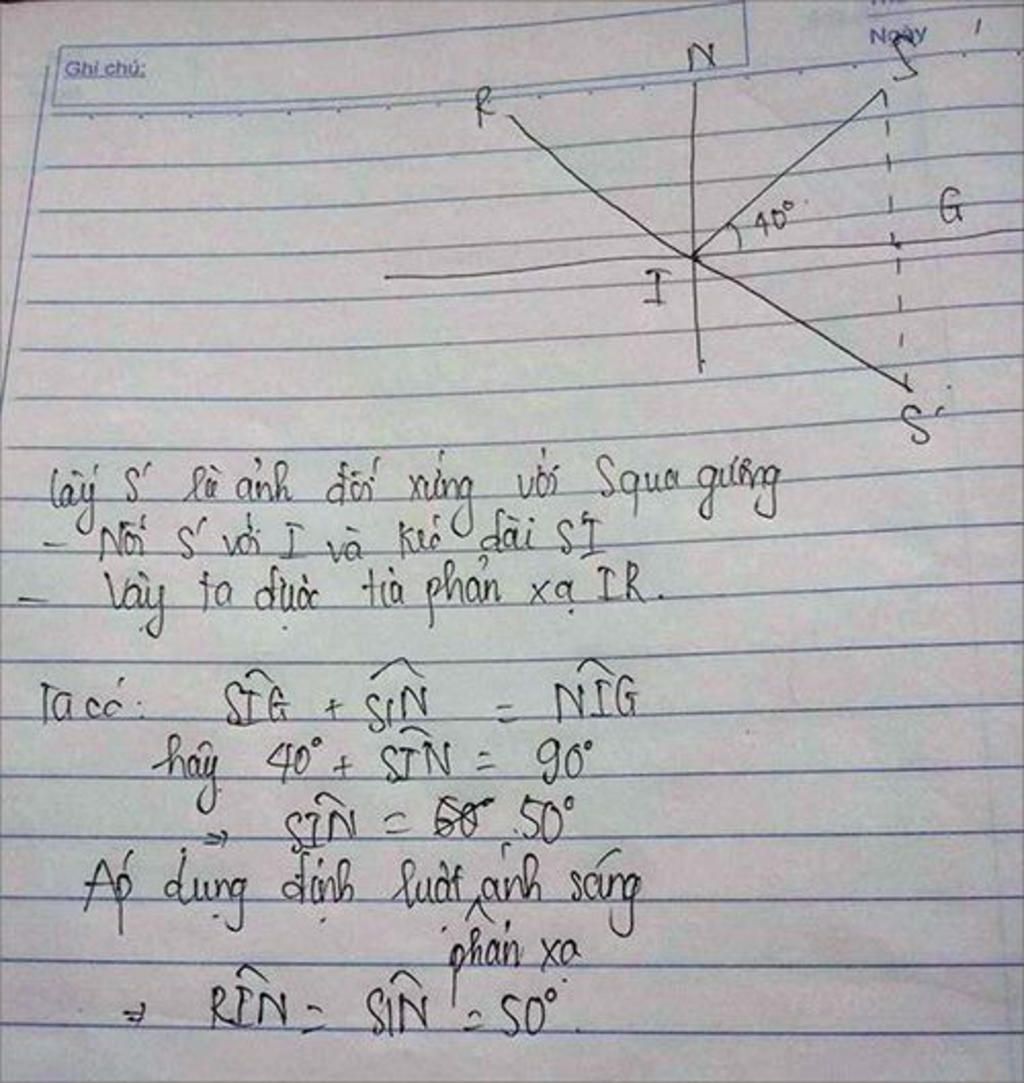 Ghi chú:
Ngày
N
S
R
40°
G
I
S'
Lấy S' là ảnh đối xứng với S qua gương
- Nối S' với I và kéo dài S'I
- Vậy ta được tia phản xạ IR.
Ta có: SIG + SIN = NIG
hay 40° + SIN = 90°
⇒ SIN = 50°
Áp dụng định luật phản xạ ánh sáng
⇒ RIN = SIN = 50°.